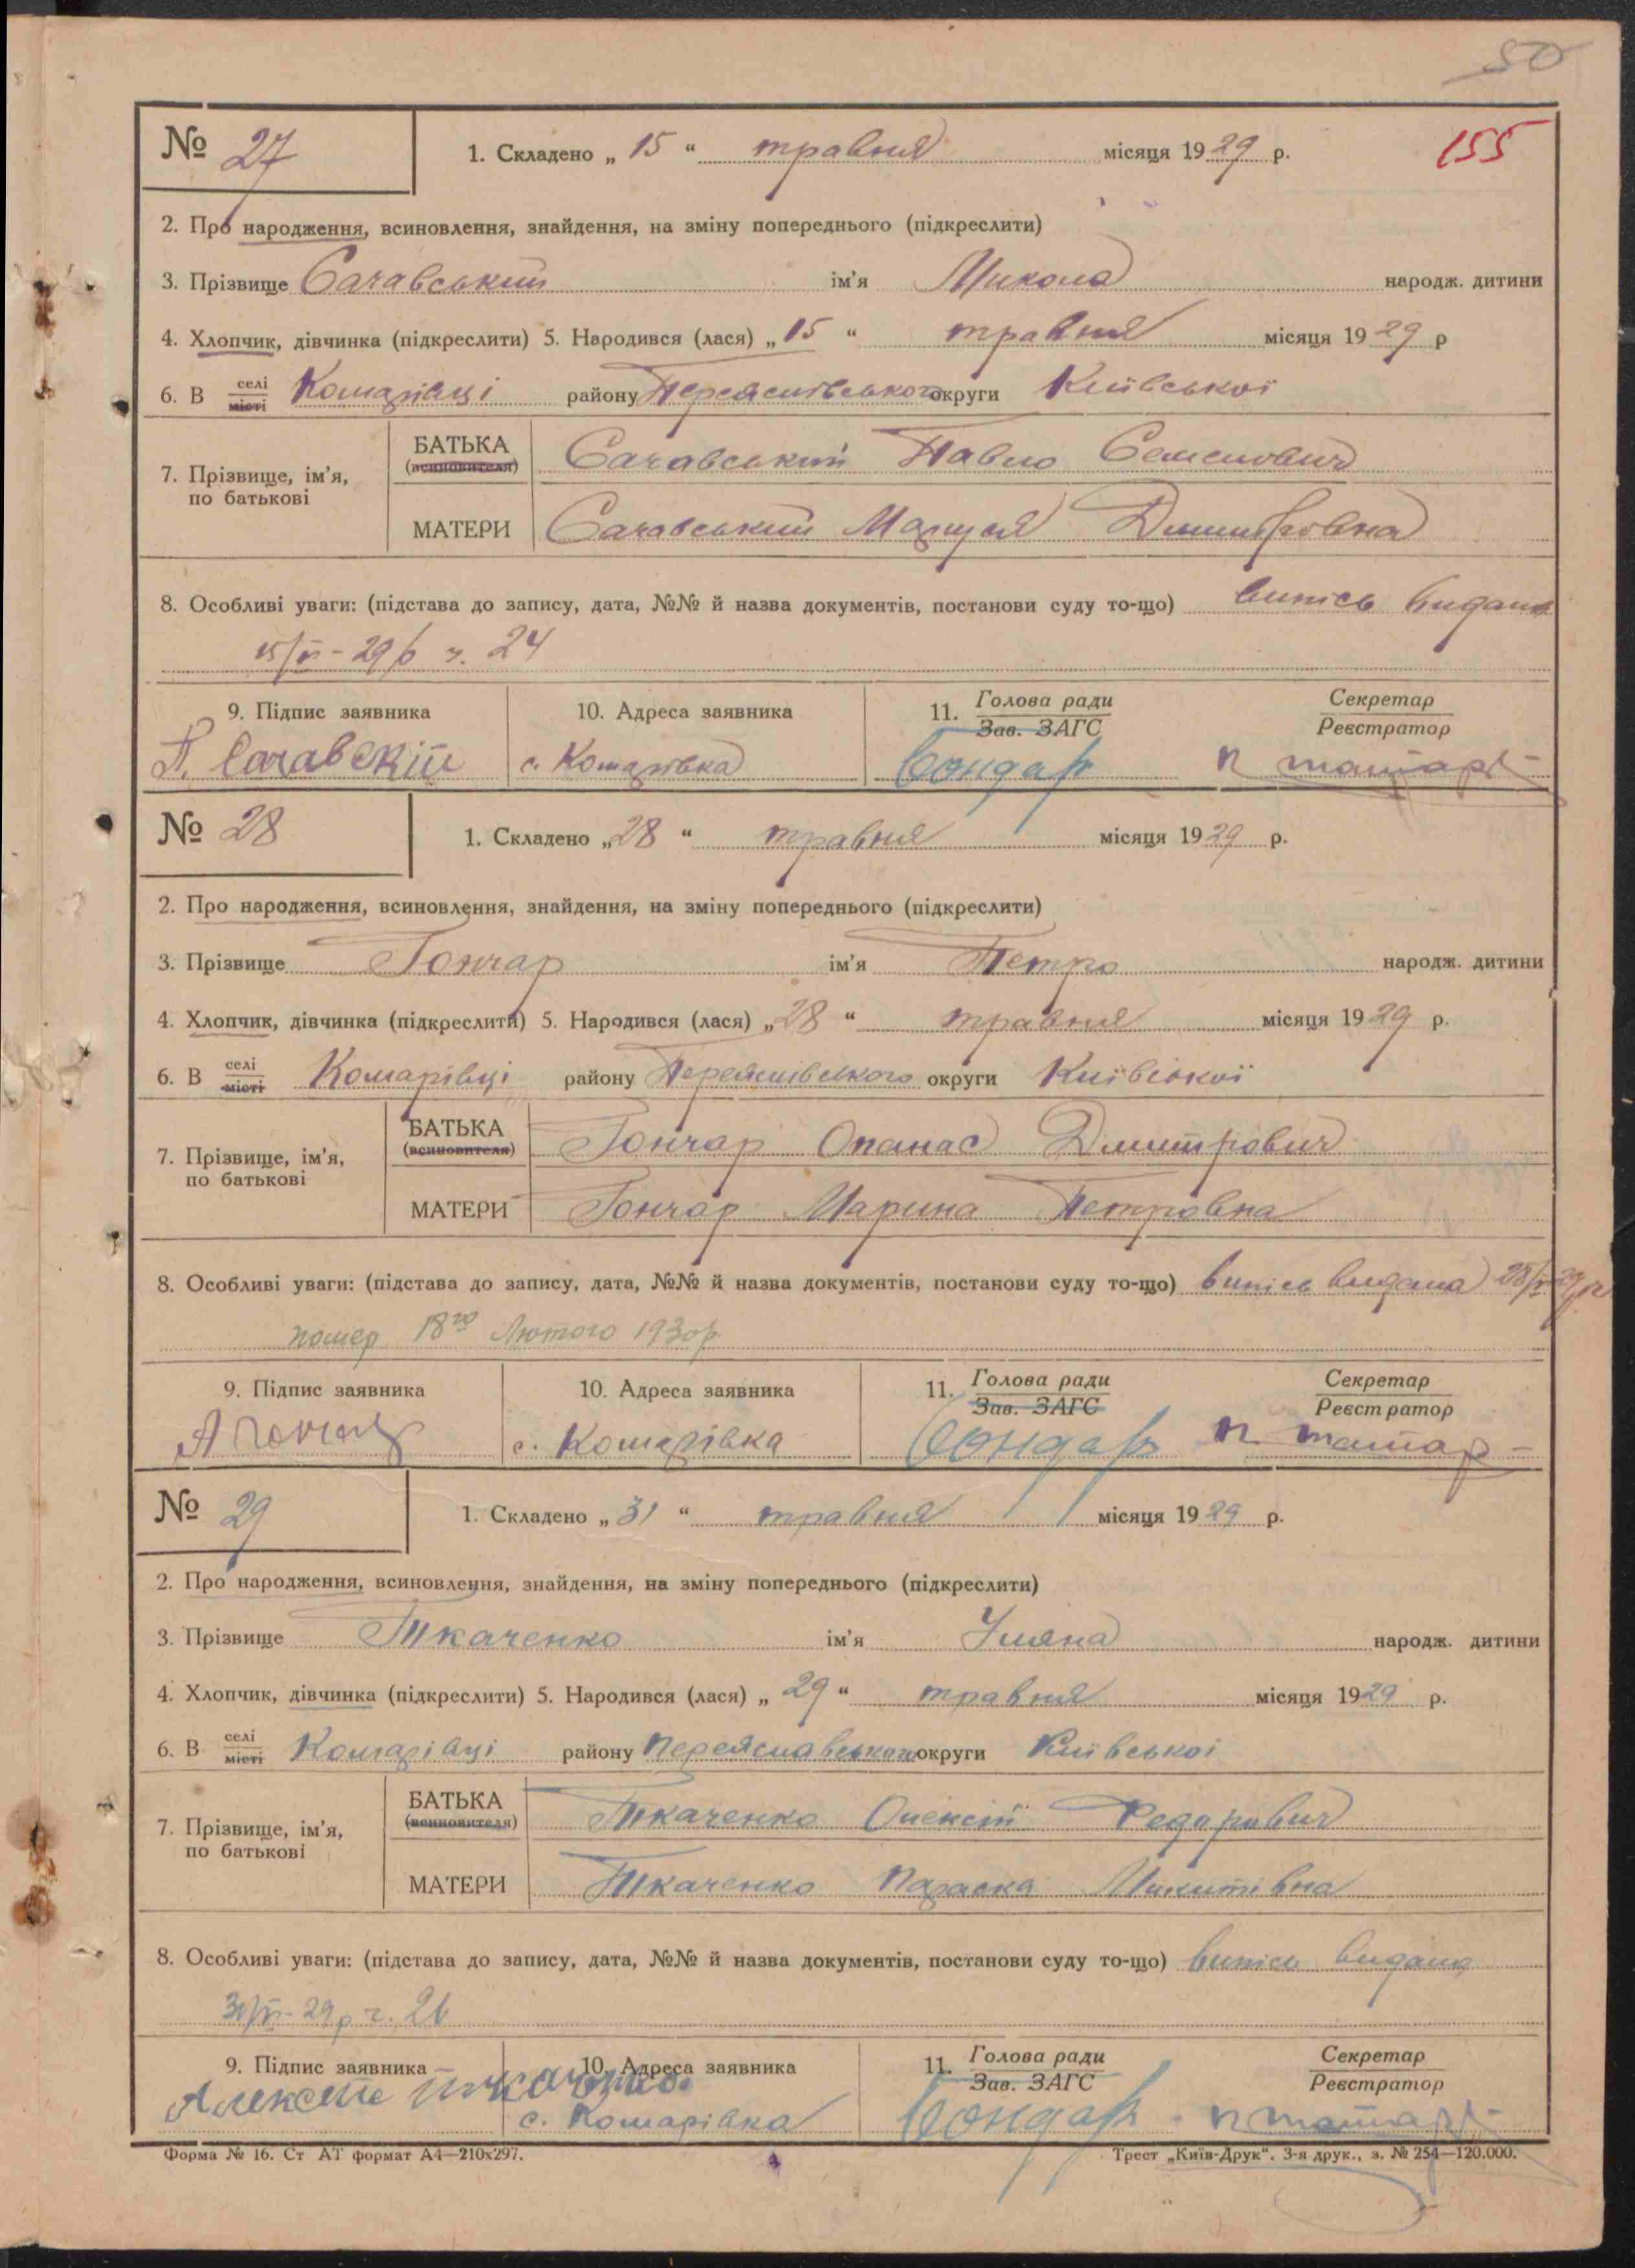 50
№ 27 1. Складено „ 15 “ травня місяця 1929 р. 155
2. Про народження, всиновлення, знайдення, на зміну попереднього (підкреслити)
3. Прізвище Сачавський ім'я Микола народж. дитини
4. Хлопчик, дівчинка (підкреслити) 5. Народився (лася) „ 15 “ травня місяця 1929 р
6. В селі Комарівці району Переяслівського округи Київської
місті
БАТЬКА
(всиновителя) Сачавський Павло Семенович
7. Прізвище, ім'я,
по батькові
МАТЕРИ Сачавський Маруся Дмитровна
8. Особливі уваги: (підстава до запису, дата, №№ й назва документів, постанови суду то-що) випісь видана
15/VI - 29 р ч. 24
9. Підпис заявника 10. Адреса заявника 11. Голова ради Секретар
Зав. ЗАГС Реєстратор
П. Сачавский с. Комарівка Бондар
№ 28 1. Складено „28 “ травня місяця 1929 р.
2. Про народження, всиновлення, знайдення, на зміну попереднього (підкреслити)
3. Прізвище Гончар ім'я Петро народж. дитини
4. Хлопчик, дівчинка (підкреслити) 5. Народився (лася) „28 “ травня місяця 1929 р.
6. В селі Комарівці району Переяслівського округи Київської
місті
БАТЬКА
(всиновителя) Гончар Опанас Дмитрович
7. Прізвище, ім'я,
по батькові
МАТЕРИ Гончар Марина Петровна
8. Особливі уваги: (підстава до запису, дата, №№ й назва документів, постанови суду то-що) випісь видана
помер 18го Лютого 1930р
9. Підпис заявника 10. Адреса заявника 11. Голова ради Секретар
Зав. ЗАГС Реєстратор
А Гончар с. Комарівка Бондар
№ 29 1. Складено „ 31 “ травня місяця 1929 р.
2. Про народження, всиновлення, знайдення, на зміну попереднього (підкреслити)
3. Прізвище Ткаченко ім'я Уляна народж. дитини
4. Хлопчик, дівчинка (підкреслити) 5. Народився (лася) „ 29 “ травня місяця 1929 р.
6. В селі Комарівці району Переяславського округи Київської
місті
БАТЬКА
(всиновителя) Ткаченко Олексій Федорович
7. Прізвище, ім'я,
по батькові
МАТЕРИ Ткаченко Параска Микитівна
8. Особливі уваги: (підстава до запису, дата, №№ й назва документів, постанови суду то-що) випісь видана
29р ч. 26
9. Підпис заявника 10. Адреса заявника 11. Голова ради Секретар
Зав. ЗАГС Реєстратор
Ткаченко с. Комарівка Бондар
Форма № 16. Ст АТ формат А4—210х297. Трест „Київ-Друк“. 3-я друк., з. № 254—120.000.